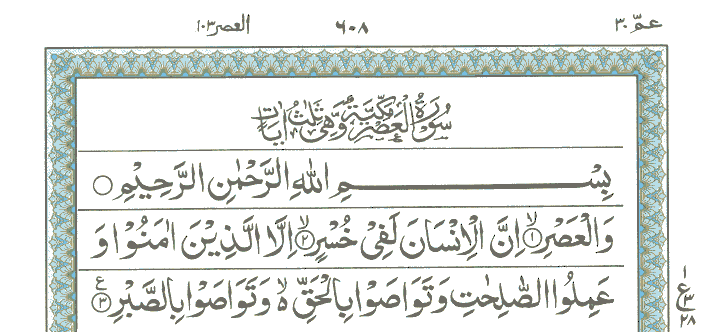 عمّ ٣٠ ٦٠٨ العصر ١٠٣
سُوْرَةُ الْعَصْرِ مَكِّيَّةٌ وَّهِىَ ثَلٰثُ اٰيَاتٍ
بِسْمِ اللهِ الرَّحْمٰنِ الرَّحِيْمِ ○
وَالْعَصْرِ ۙ‏﴿۱﴾ اِنَّ الْاِنْسَانَ لَفِىْ خُسْرٍ ۙ‏﴿۲﴾ اِلَّا الَّذِيْنَ اٰمَنُوْا وَ
عَمِلُوا الصّٰلِحٰتِ وَتَوَاصَوْا بِالْحَقِّ ۙ وَتَوَاصَوْا بِالصَّبْرِ ﴿۳﴾ ع
١
ع ٣
٢٨